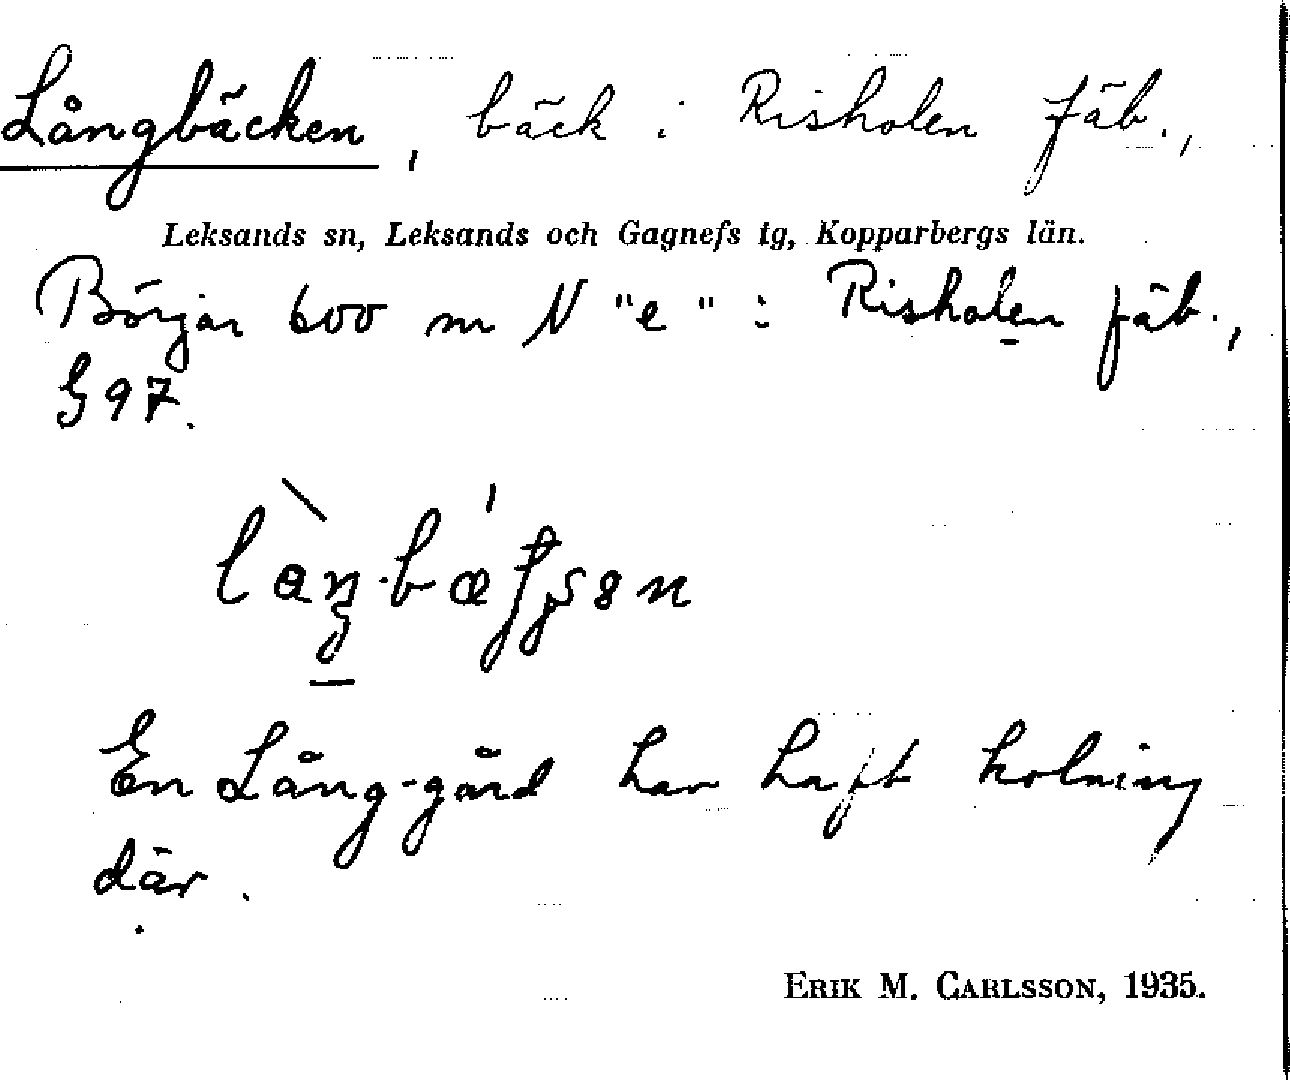 Långbäcken, bäck i Risholen fäb.,
Leksands sn, Leksands och Gagnefs tg, Kopparbergs län.
Börjar 600 m N "e" i Risholen fäb.,
§ 97.
En Lång-gård har haft kolning
där.
ERIK M. CARLSSON, 1935.